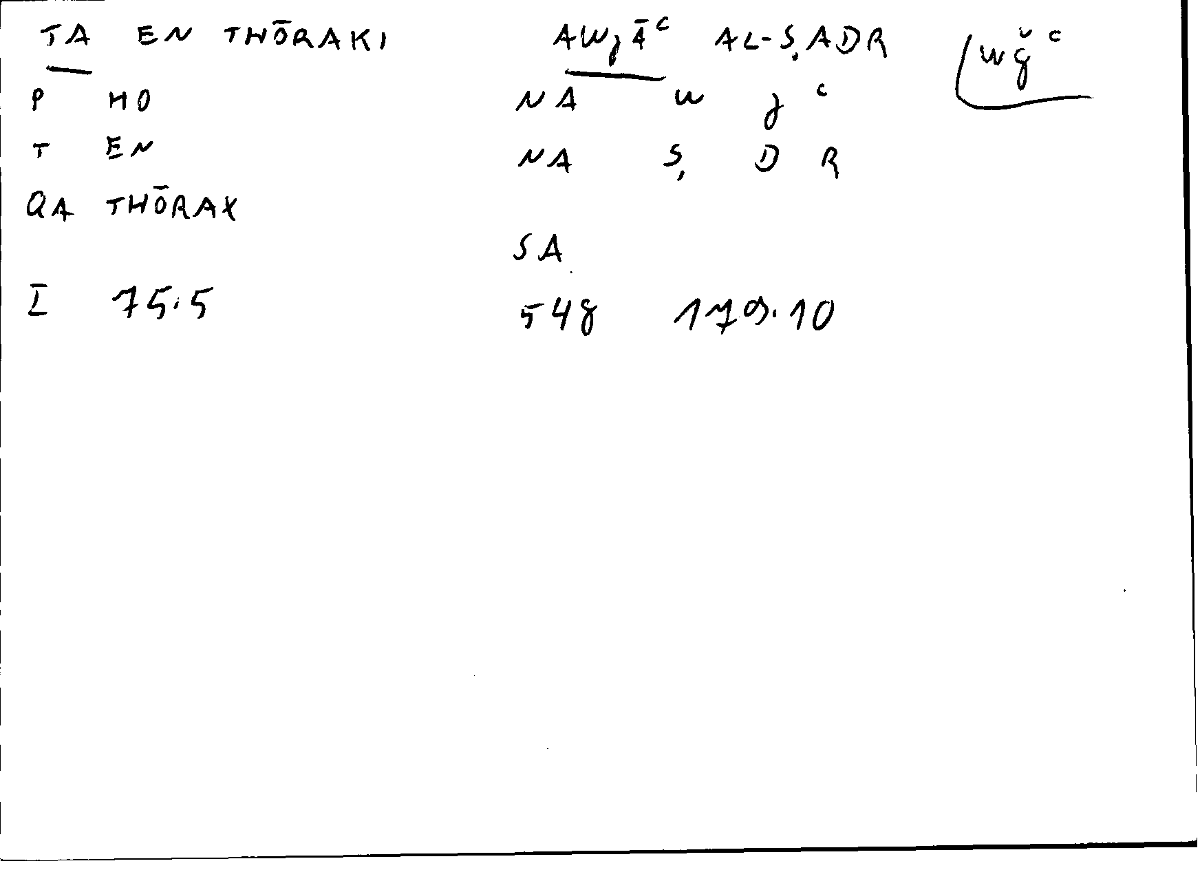 TA EN THŌRAKI AWJĀʿ AL-ṢADR wǧʿ
P HO NA W J ʿ
T EN NA Ṣ D R
QA THŌRAX
SA
I 75.5 548 179.10